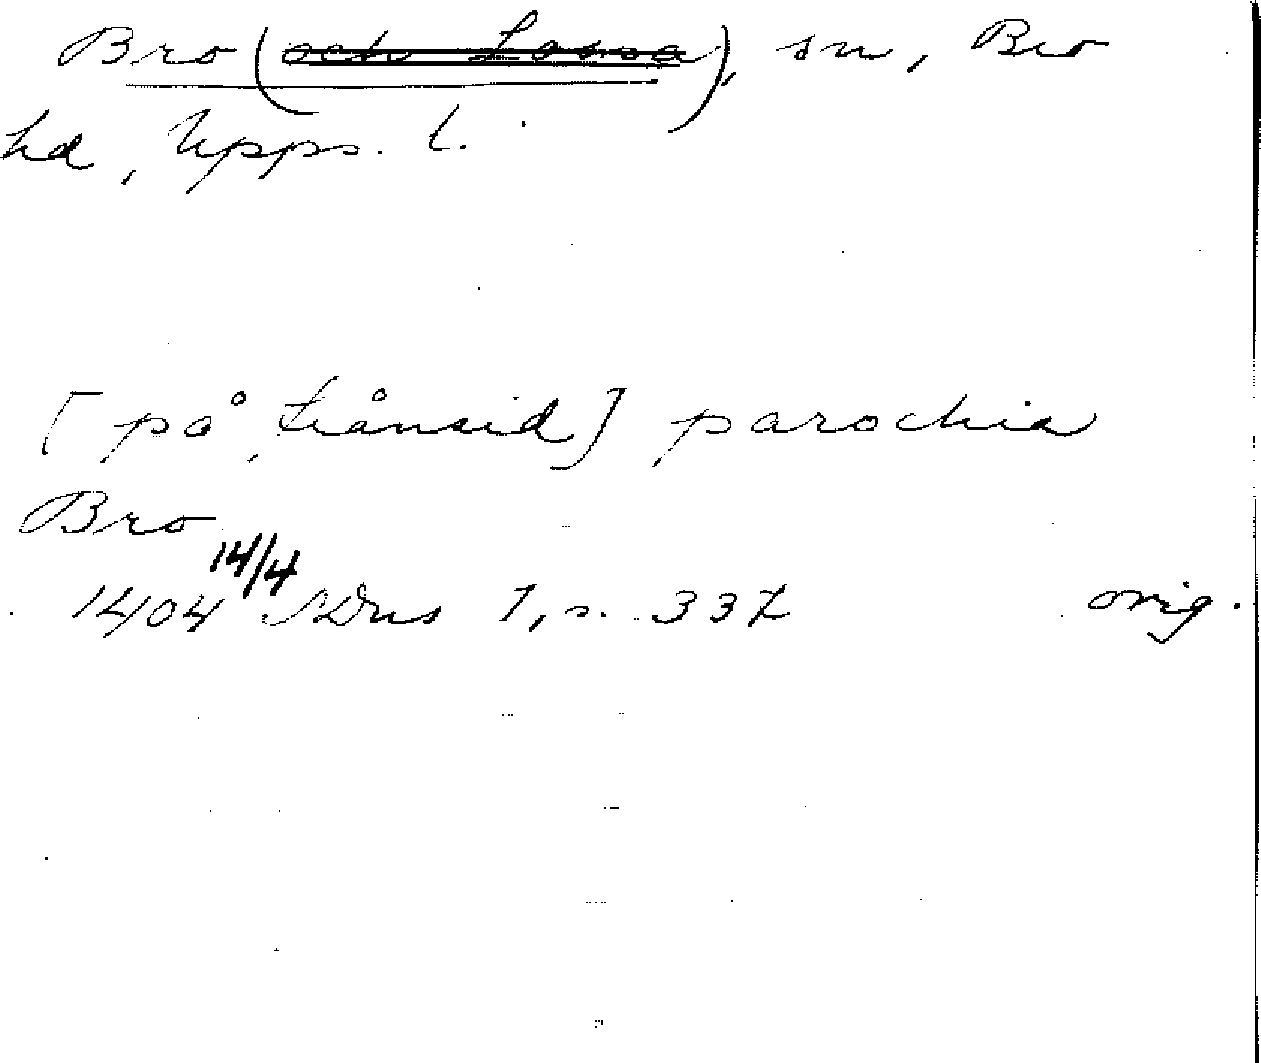 Bro (och Lossa), sn, Bro
hd, Upps. l.
[på, frånsid] parochia
Bro
1404 14/4 SDns 1, s. 337 orig.